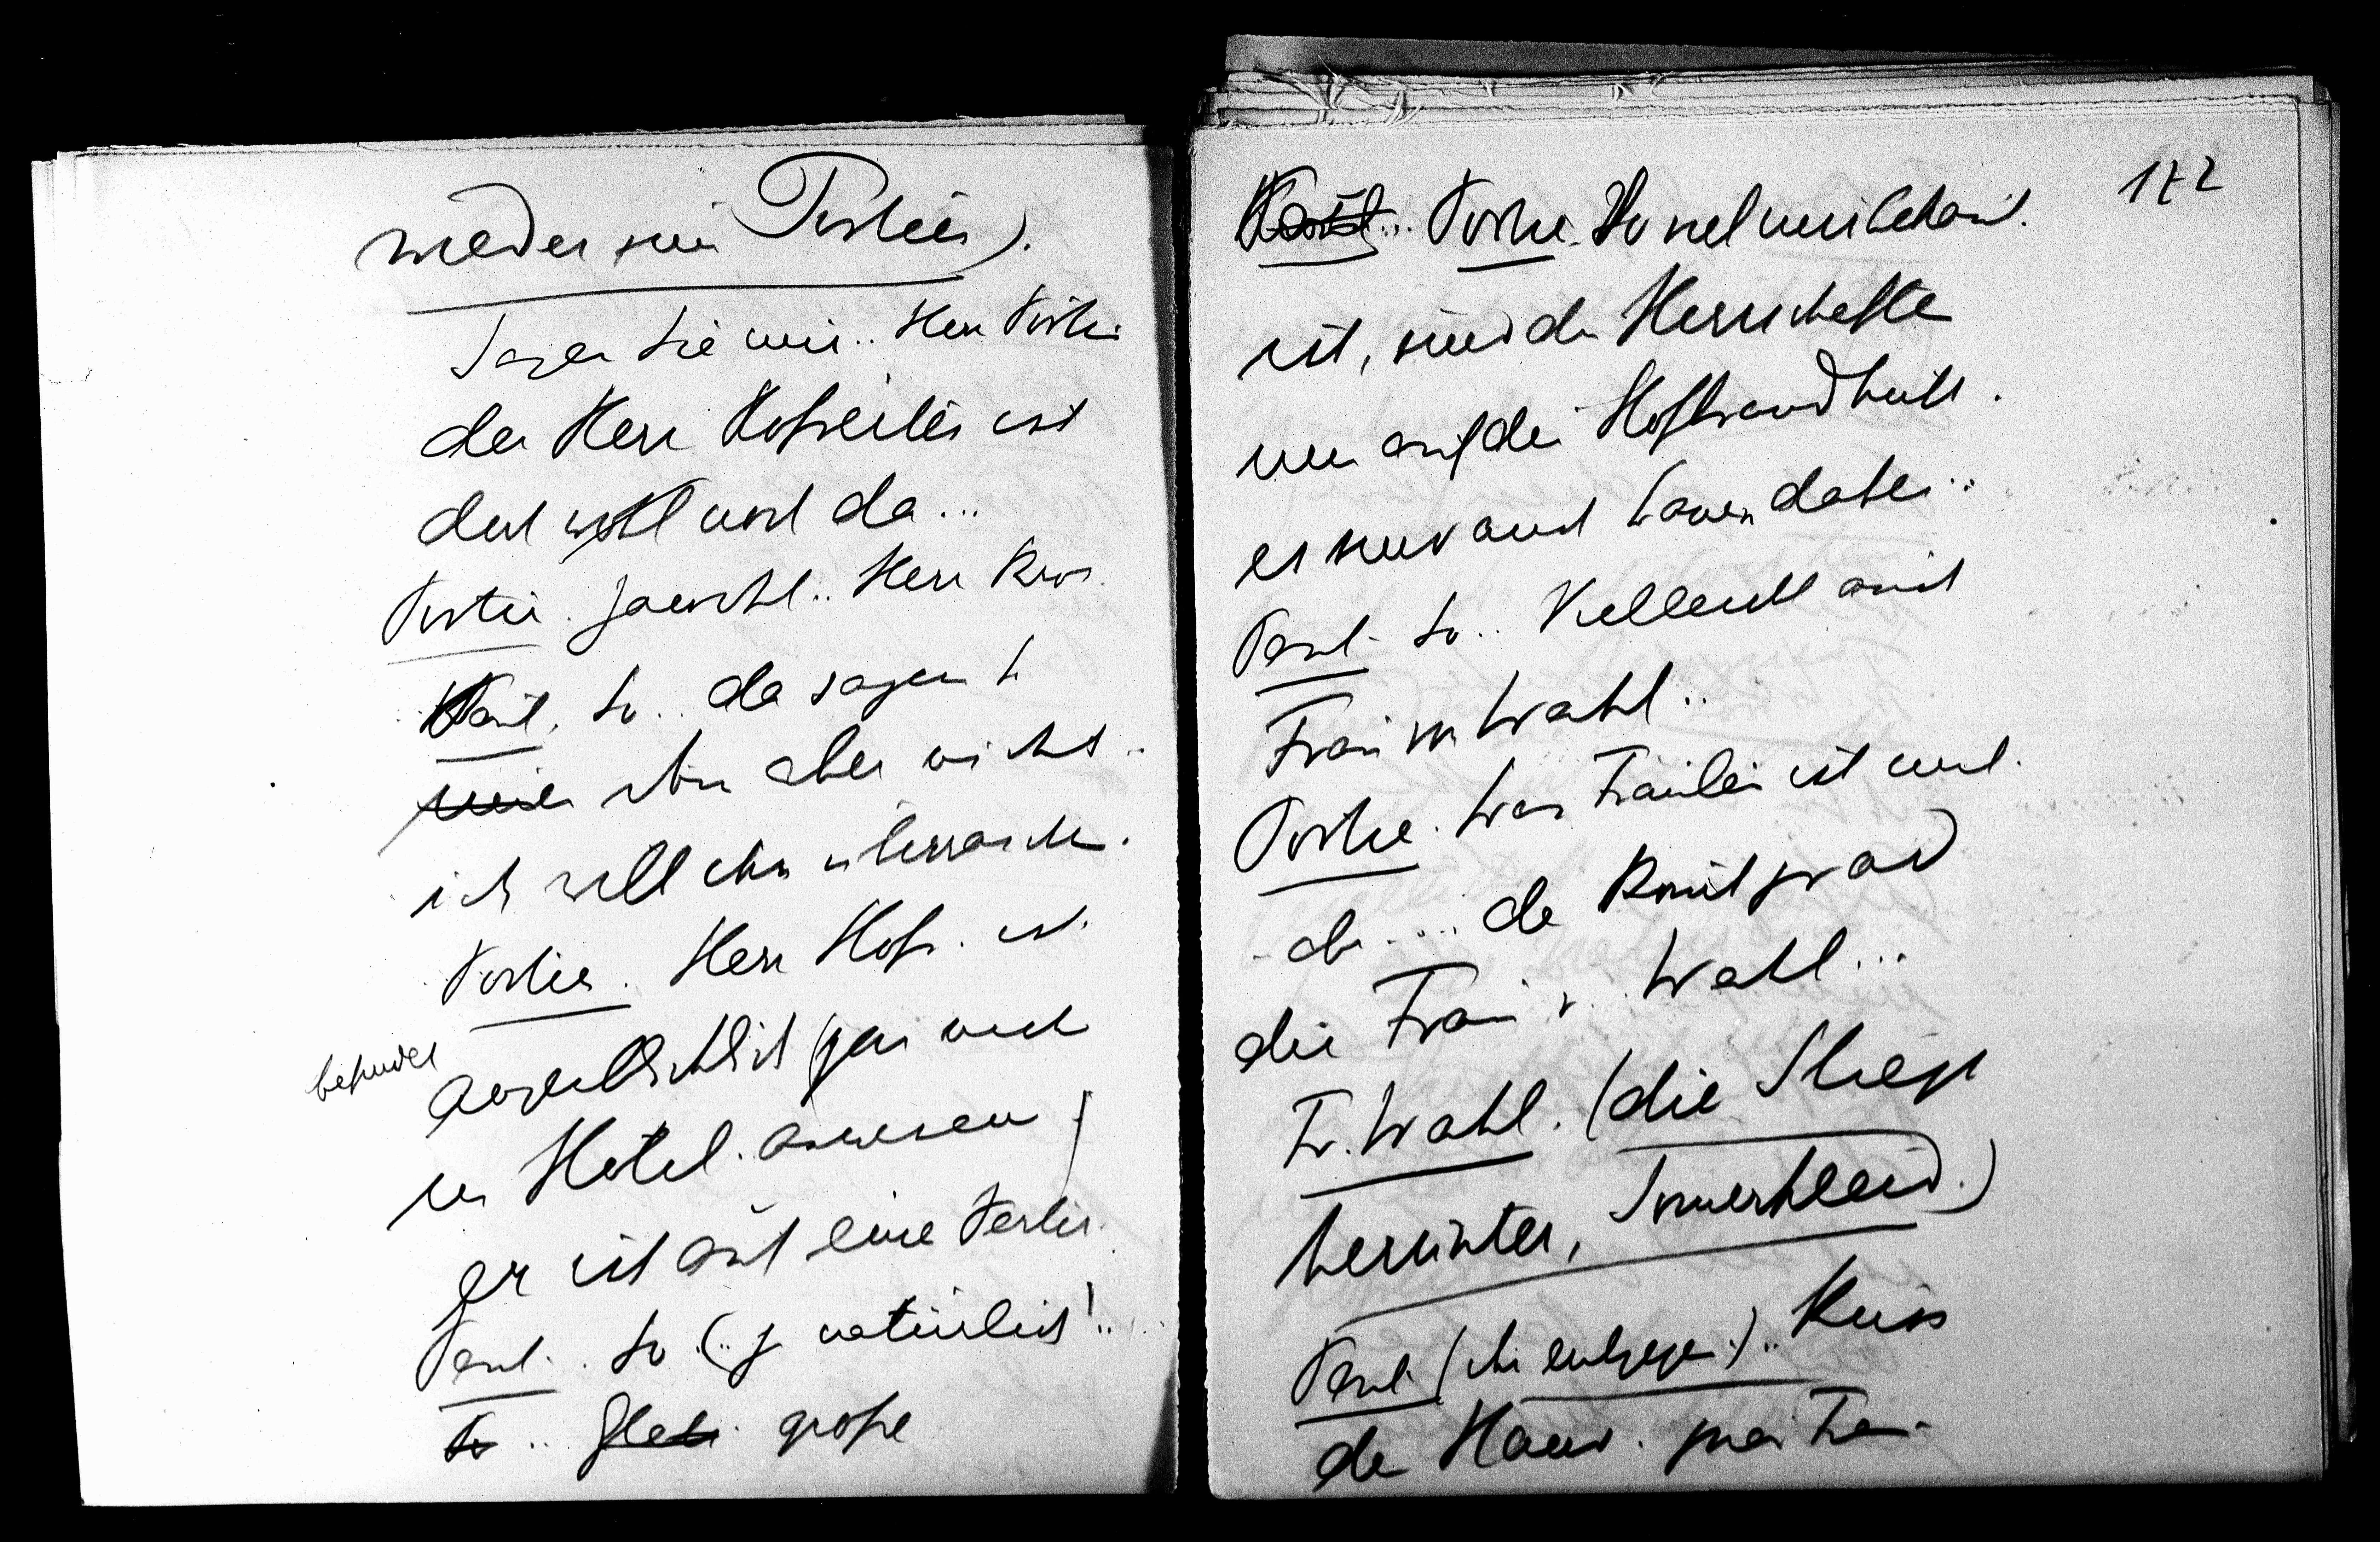 wieder zum Portier).
Sagen Sie mir.. Herr Portier
der Herr Hofreiter ist
doch wohl noch da...
Portier. Jawohl.. Herr Kreu.
Paul. So.. da sagen S
ihm aber nichts.
ich will ihn überrasch.
Portier. Herr Hofr. ist
befindet
augenblicklich gar nicht
im Hotel. anwesend
Er ist auf eine Partie.
Paul. So (.. ja natürlich!..
große
172
Portier. So viel mir bekannt.
ist, sind die Herrschaften
nur auf die Hofbrandhütte.
es sind auch Damen dabei..
Paul. So.. Vielleicht auch
Frau v. Wahl..
Portier. Das Fräulein ist auch
da.... da kommt grad
die Frau v. Wahl...
Fr. Wahl. (die Stiege
herunter, Sommerkleid.)
Paul (ihr entgegen).. Küss
die Hand. gnä Fr.